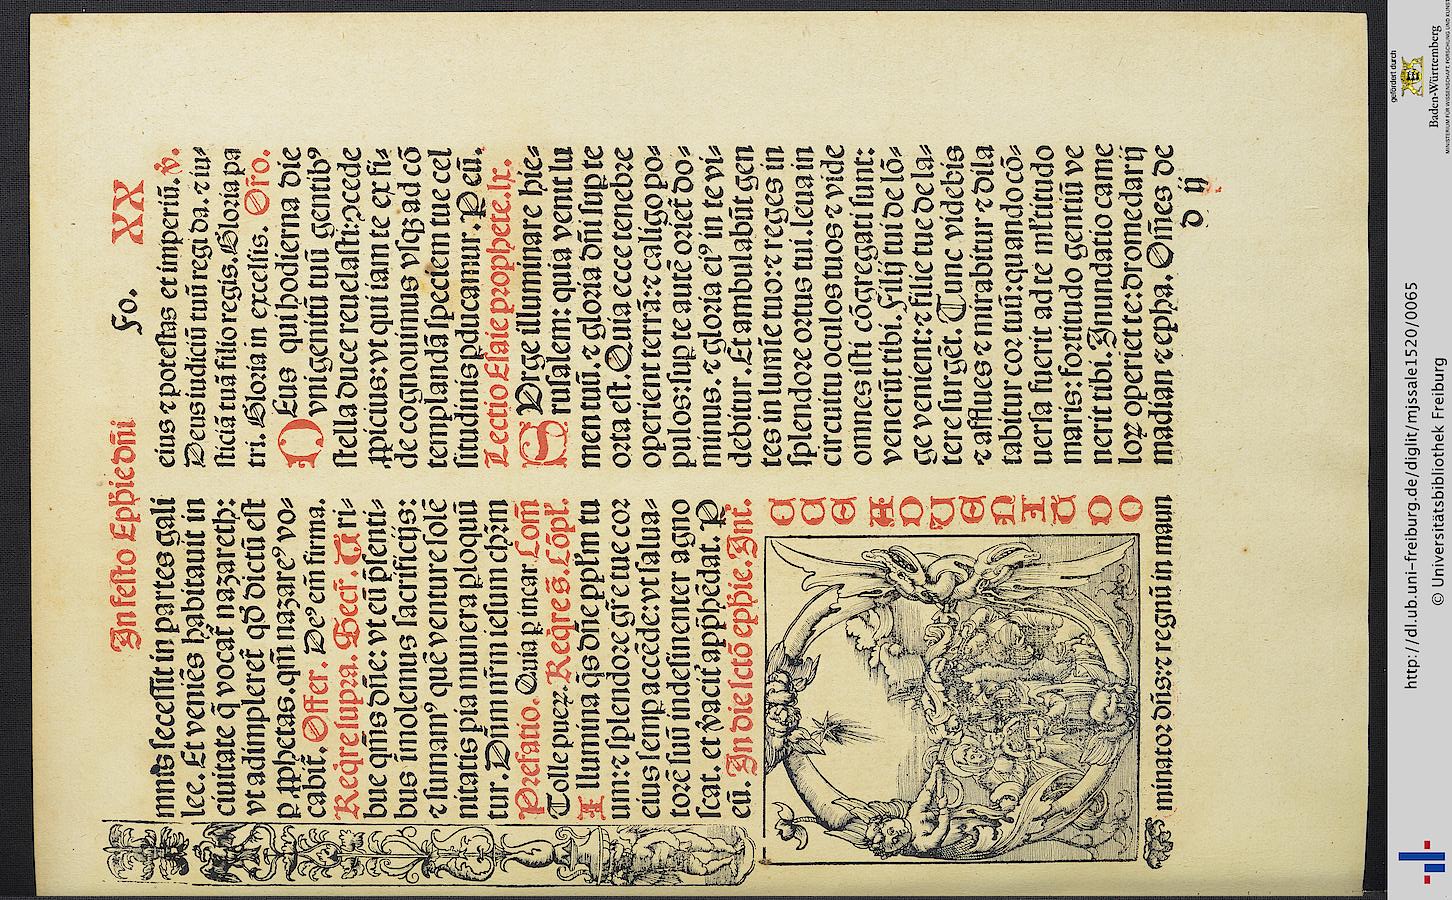 In festo Ephie dñi
Fo. XX
mnis secessit in partes gali
lee. Et veniẽs habitauit in
ciuitate q̃ vocat̃ nazareth:
vt adimpleret̃ qđ dictũ est
p ꝓphetas. qm̃ nazareꝰ vo⸗
cabit̃. Offer. Deꝰ em̃ firma.
Reqͥre supra. Secr̃. Tͥ ri⸗
bue qm̃s dñe: vt eũ p̃senti⸗
bus īmolemus sacrificijs:
⁊ sumamꝰ quẽ venture solẽ
nitatis pia munera ꝓloquũ
tur. Dñm nr̃m iesum chr̃m
Prefatio. Quia p incar. Com̃
Tolle pueꝝ. Reqͥre s̃. Cõpl̃.
Illumina q̃s dñe ppl̃m tu
um: ⁊ splendore gr̃e tue cor
eius semꝑ accẽde: vt salua⸗
torẽ suũ indesinenter agno
scat. et vaciť apphẽdat. P
eũ. In die sctõ ephie. Int̃.
minator dñs: ⁊ regnũ in manu
eius ⁊ potestas et imperiũ. V̾.
Deus iudiciũ tuũ regi da. ⁊ iu⸗
sticiã tuã filio regis. Gloria pa
tri. Gloria in excelsis. Oro.
DEus qui hodierna die
vnigenitũ tuũ gentibꝰ
stella duce reuelasti: ꝯcede
ꝓpicius: vt qui iam te ex fi⸗
de cognouimus vsqꝫ ad cõ
templandã speciem tue cel
situdinis ꝑducamur. P eũ.
Lectio Esaie prophete. lx.
SUrge illuminare hie⸗
rusalem: quia venit lu
men tuũ. ⁊ gloria dñi suꝑ te
orta est. Quia ecce tenebre
operient terrã: ⁊ caligo po⸗
pulos: suꝑ te autẽ orieť do⸗
minus. ⁊ gloria eiꝰ in te vi⸗
debitur. Et ambulabũt gen
tes in lumie tuo: ⁊ reges in
splendore ortus tui. Leua in
circuitu oculos tuos ⁊ vide
omnes isti cõgregati sunt:
venerũt tibi. Filij tui de lõ⸗
ge venient: ⁊ filie tue de la⸗
tere surgẽt. Tunc videbis
⁊ afflues ⁊ mirabitur ⁊ dila
tabitur cor tuũ: quando cõ⸗
uersa fuerit ad te ml̃titudo
maris: fortitudo gentiũ ve
nerit tibi. Inundatio came
loꝝ operiet te: dromedarij
madian ⁊ epha. Om̃es de
d ij
gefördert durch
Baden-Württemberg
MINISTERIUM FÜR WISSENSCHAFT, FORSCHUNG UND KUNST
http://dl.ub.uni-freiburg.de/diglit/missale1520/0065
© Universitätsbibliothek Freiburg